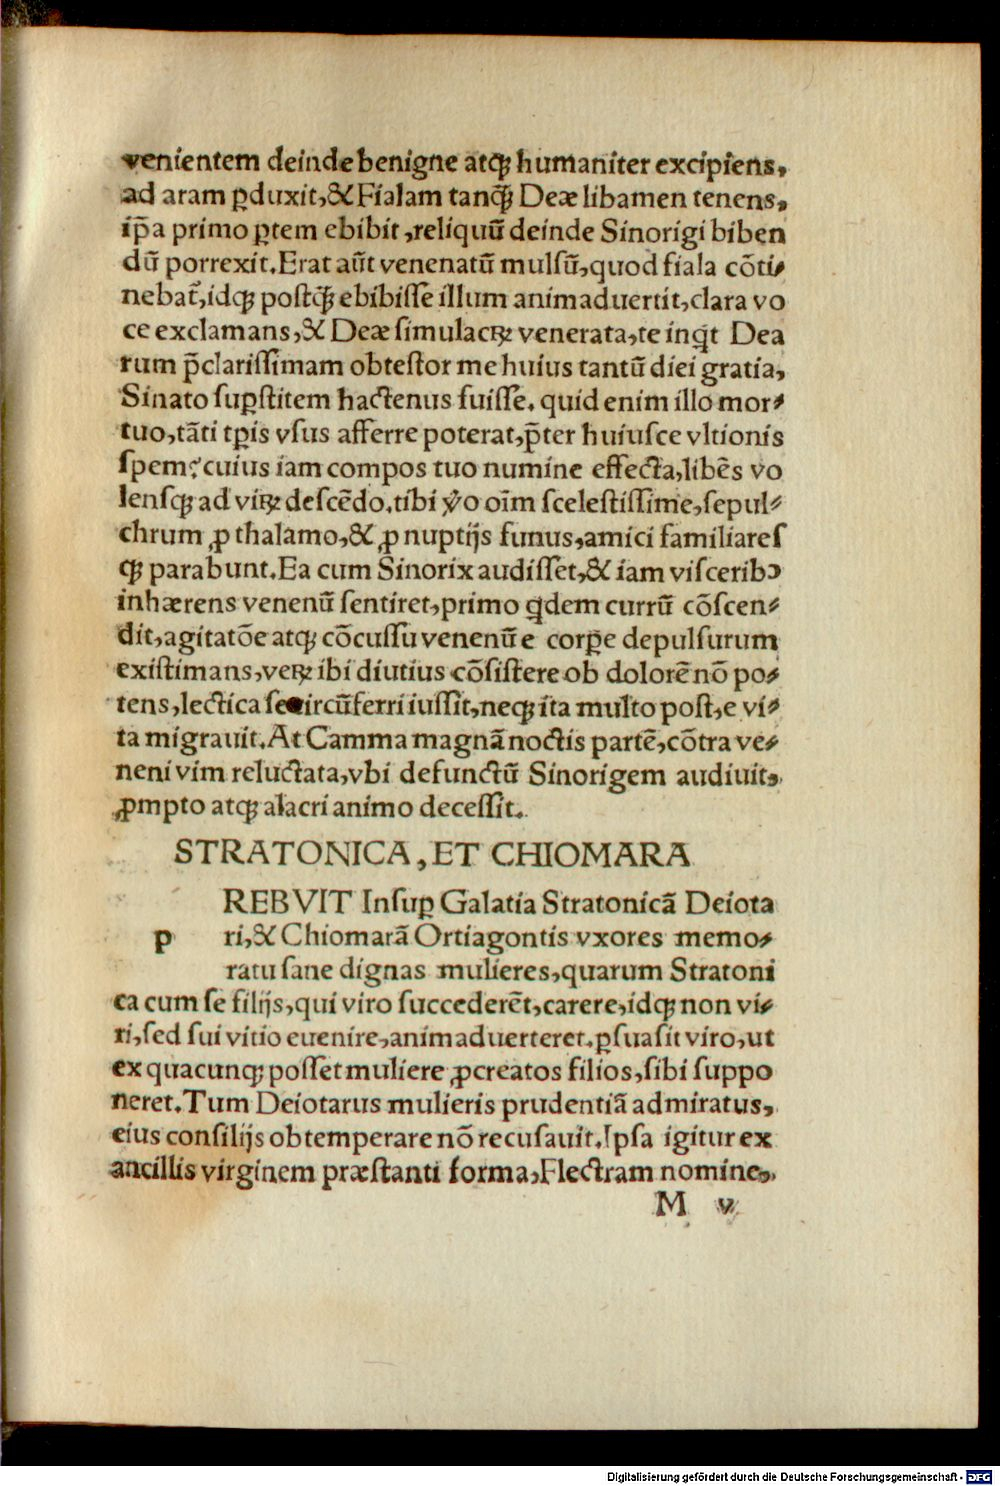 venientem deinde benigne atqꝫ humaniter excipiens,
ad aram ꝑduxit, & Fialam tanqꝫ̃ Deæ libamen tenens,
ip̃a primo ꝑtem ebibit, reliquũ deinde Sinorigi biben
dũ porrexit. Erat aũt venenatũ mulſũ, quod fiala cõti⸗
nebat̃, idqꝫ poſtqꝫ̃ ebibiſſe illum animaduertit, clara vo
ce exclamans, & Deæ ſimulacꝝ venerata, te inq̇t Dea
rum p̃clariſſimam obteſtor me huius tantũ diei gratia,
Sinato ſuꝑſtitem hactenus fuiſſe. quid enim illo mor⸗
tuo, tãti tꝑis vſus afferre poterat, p̃ter huiuſce vltionis
ſpem? cuius iam compos tuo numine effecta, libẽs vo
lenſqꝫ ad viꝝ deſcẽdo. tibi ṽo oĩm ſceleſtiſſime, ſepul⸗
chrum ꝓ thalamo, & ꝓ nuptijs funus, amici familiareſ
qꝫ parabunt. Ea cum Sinorix audiſſet, & iam viſceribꝰ
inhærens venenũ ſentiret, primo q̇dem currũ cõſcen⸗
dit, agitatõe atqꝫ cõcuſſu venenũ e corꝑe depulſurum
exiſtimans, veꝝ ibi diutius cõſiſtere ob dolorẽ nõ po⸗
tens, lectica ſe circũferri iuſſit, neqꝫ ita multo poſt, e vi⸗
ta migrauit. At Camma magnã noctis partẽ, cõtra ve⸗
neni vim reluctata, vbi defunctũ Sinorigem audiuit,
ꝓmpto atqꝫ alacri animo deceſſit.
STRATONICA, ET CHIOMARA
REBVIT Inſuꝑ Galatia Stratonicã Deiota
p ri, & Chiomarã Ortiagontis vxores memo⸗
ratu ſane dignas mulieres, quarum Stratoni
ca cum ſe filijs, qui viro ſuccederẽt, carere, idqꝫ non vi⸗
ri, ſed ſui vitio euenire, animaduerteret. ꝑſuaſit viro, ut
ex quacunqꝫ poſſet muliere ꝓcreatos filios, ſibi ſuppo
neret. Tum Deiotarus mulieris prudentiã admiratus,
eius conſilijs obtemperare nõ recuſauit. Ipſa igitur ex
ancillis virginem præſtanti forma, Flectram nomine,
M v
Digitalisierung gefördert durch die Deutsche Forschungsgemeinschaft - DFG